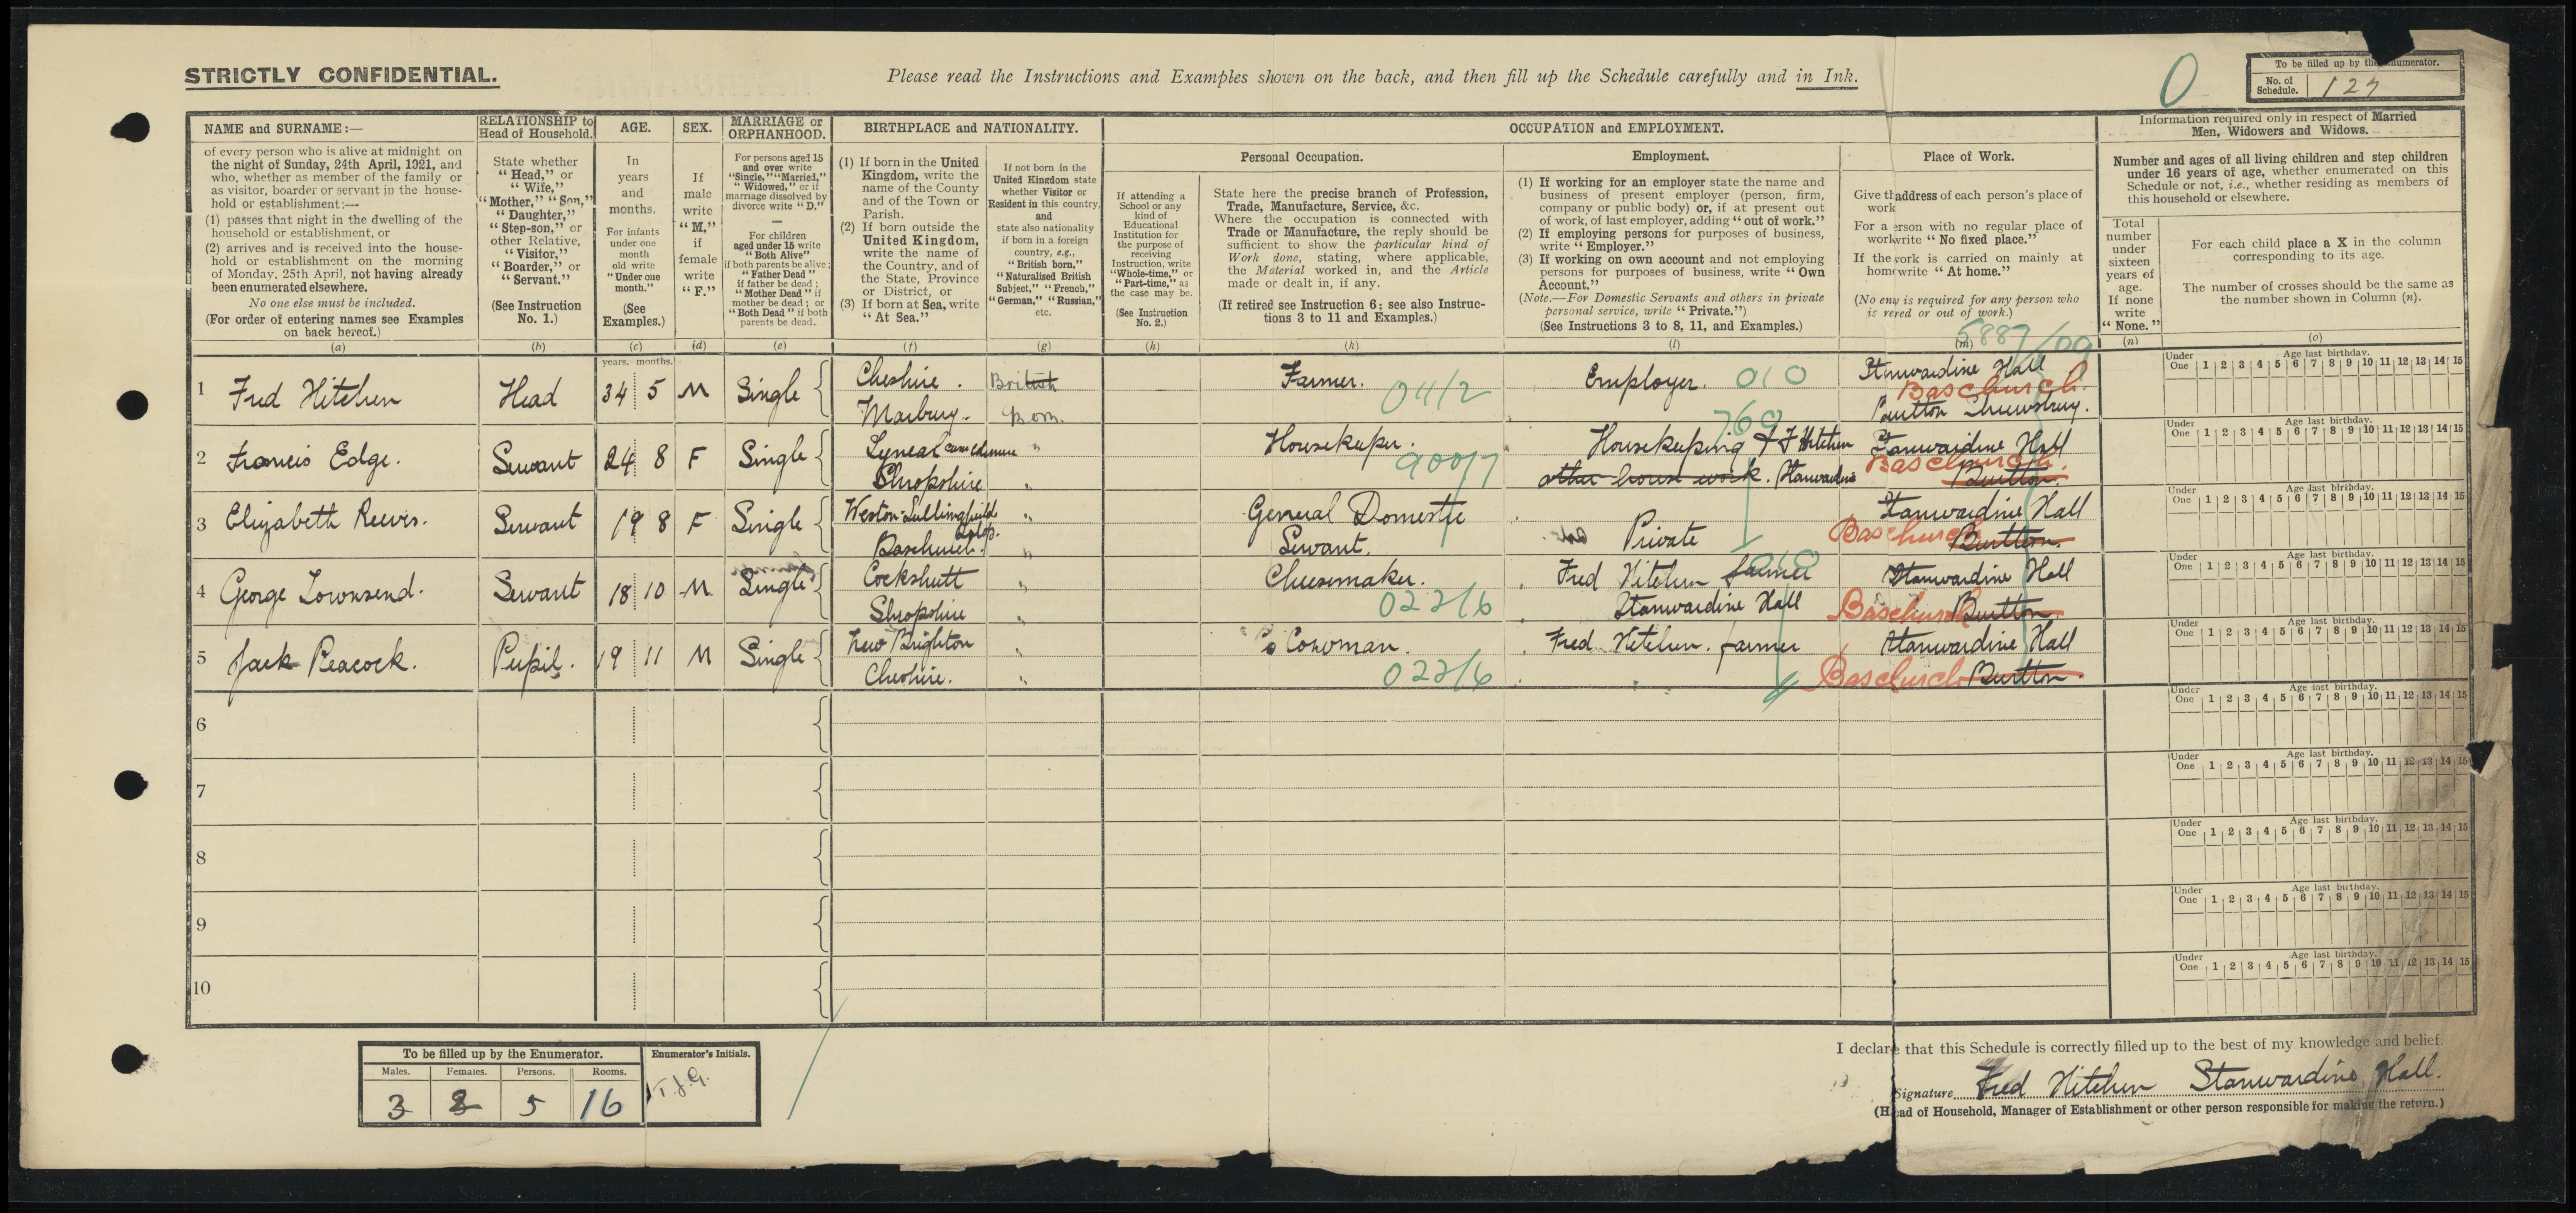 STRICTLY CONFIDENTIAL.
Please read the Instructions and Examples shown on the back, and then fill up the Schedule carefully and in Ink.
0
To be filled up by the Enumerator.
No. of Schedule. 127
NAME and SURNAME:—
of every person who is alive at midnight on
the night of Sunday, 24th April, 1921, and
who, whether as member of the family or
as visitor, boarder or servant in the house-
hold or establishment:—
(1) passes that night in the dwelling of the
household or establishment, or
(2) arrives and is received into the house-
hold or establishment on the morning
of Monday, 25th April, not having already
been enumerated elsewhere.
No one else must be included.
(For order of entering names see Examples
on back hereof.)
(a)
RELATIONSHIP to
Head of Household.
State whether
"Head," or
"Wife,"
"Mother," "Son,"
"Daughter,"
"Step-son," or
other Relative,
"Visitor,"
"Boarder," or
"Servant."
(See Instruction
No. 1.)
(b)
AGE.
In
years
and
months.
For infants
under one
month
old write
"Under one
month."
(See
Examples.)
(c)
years. months.
SEX.
If
male
write
"M,"
if
female
write
"F."
(d)
MARRIAGE or
ORPHANHOOD.
For persons aged 15
and over write
"Single," "Married,"
"Widowed," or if
marriage dissolved by
divorce write "D."
—
For children
aged under 15 write
"Both Alive"
if both parents be alive;
"Father Dead"
if father be dead;
"Mother Dead" if
mother be dead; or
"Both Dead" if both
parents be dead.
(e)
BIRTHPLACE and NATIONALITY.
(1) If born in the United
Kingdom, write the
name of the County
and of the Town or
Parish.
(2) If born outside the
United Kingdom,
write the name of
the Country, and of
the State, Province
or District, or
(3) If born at Sea, write
"At Sea."
(f)
If not born in the
United Kingdom state
whether Visitor or
Resident in this country,
and
state also nationality
if born in a foreign
country, e.g.,
"British born,"
"Naturalised British
Subject," "French,"
"German," "Russian,"
etc.
(g)
OCCUPATION and EMPLOYMENT.
If attending a
School or any
kind of
Educational
Institution for
the purpose of
receiving
Instruction, write
"Whole-time," or
"Part-time," as
the case may be.
(See Instruction
No. 2.)
(h)
Personal Occupation.
State here the precise branch of Profession,
Trade, Manufacture, Service, &c.
Where the occupation is connected with
Trade or Manufacture, the reply should be
sufficient to show the particular kind of
Work done, stating, where applicable,
the Material worked in, and the Article
made or dealt in, if any.
(If retired see Instruction 6; see also Instruc-
tions 3 to 11 and Examples.)
(k)
Employment.
(1) If working for an employer state the name and
business of present employer (person, firm,
company or public body) or, if at present out
of work, of last employer, adding "out of work."
(2) If employing persons for purposes of business,
write "Employer."
(3) If working on own account and not employing
persons for purposes of business, write "Own
Account."
(Note.—For Domestic Servants and others in private
personal service, write "Private.")
(See Instructions 3 to 8, 11, and Examples.)
(l)
Place of Work.
Give th address of each person's place of
work
For a erson with no regular place of
work write "No fixed place."
If the ork is carried on mainly at
hom write "At home."
(No en y is required for any person who
is re red or out of work.)
(m)
5887/09
Information required only in respect of Married
Men, Widowers and Widows.
Number and ages of all living children and step children
under 16 years of age, whether enumerated on this
Schedule or not, i.e., whether residing as members of
this household or elsewhere.
Total
number
under
sixteen
years of
age.
If none
write
"None."
(n)
For each child place a X in the column
corresponding to its age.
The number of crosses should be the same as
the number shown in Column (n).
(o)
Under One Age last birthday. 1 2 3 4 5 6 7 8 9 10 11 12 13 14 15
1 Fred Hitchen Head 34 5 M Single Cheshire. British Farmer. 041/2 Employer. 010 Stanwardine Hall
Baschurch.
Marbury. Born. Burlton Shrewsbury.
Under One Age last birthday. 1 2 3 4 5 6 7 8 9 10 11 12 13 14 15
2 Francis Edge. Servant 24 8 F Single Lyneal cum Colemere " Housekeeper. 900/7 760 Housekeeping F Hitchen Stanwardine Hall
Baschurch.
Shropshire " other house work. Stanwardine Burlton.
Under One Age last birthday. 1 2 3 4 5 6 7 8 9 10 11 12 13 14 15
3 Elizabeth Reeves. Servant 19 8 F Single Weston Lullingfields " General Domestic Stanwardine Hall
Salop.
Baschurch. " Servant. Private Baschurch Burlton.
Under One Age last birthday. 1 2 3 4 5 6 7 8 9 10 11 12 13 14 15
4 George Townsend. Servant 18 10 M Single Cockshutt " Cheesemaker. Fred Hitchen farmer 010 Stanwardine Hall
Shropshire " 022/6 Stanwardine Hall Baschurch Burlton
Under One Age last birthday. 1 2 3 4 5 6 7 8 9 10 11 12 13 14 15
5 Jack Peacock. Pupil. 19 11 M Single New Brighton " Cowman. Fred Hitchen. farmer Stanwardine Hall
Cheshire. " 022/6 Baschurch Burlton
Under One Age last birthday. 1 2 3 4 5 6 7 8 9 10 11 12 13 14 15
6
Under One Age last birthday. 1 2 3 4 5 6 7 8 9 10 11 12 13 14 15
7
Under One Age last birthday. 1 2 3 4 5 6 7 8 9 10 11 12 13 14 15
8
Under One Age last birthday. 1 2 3 4 5 6 7 8 9 10 11 12 13 14 15
9
Under One Age last birthday. 1 2 3 4 5 6 7 8 9 10 11 12 13 14 15
10
To be filled up by the Enumerator.
Males. Females. Persons. Rooms.
3 2 5 16
Enumerator's Initials.
T.J.G.
I declare that this Schedule is correctly filled up to the best of my knowledge and belief.
Signature Fred Hitchen Stanwardine Hall.
(Head of Household, Manager of Establishment or other person responsible for making the return.)